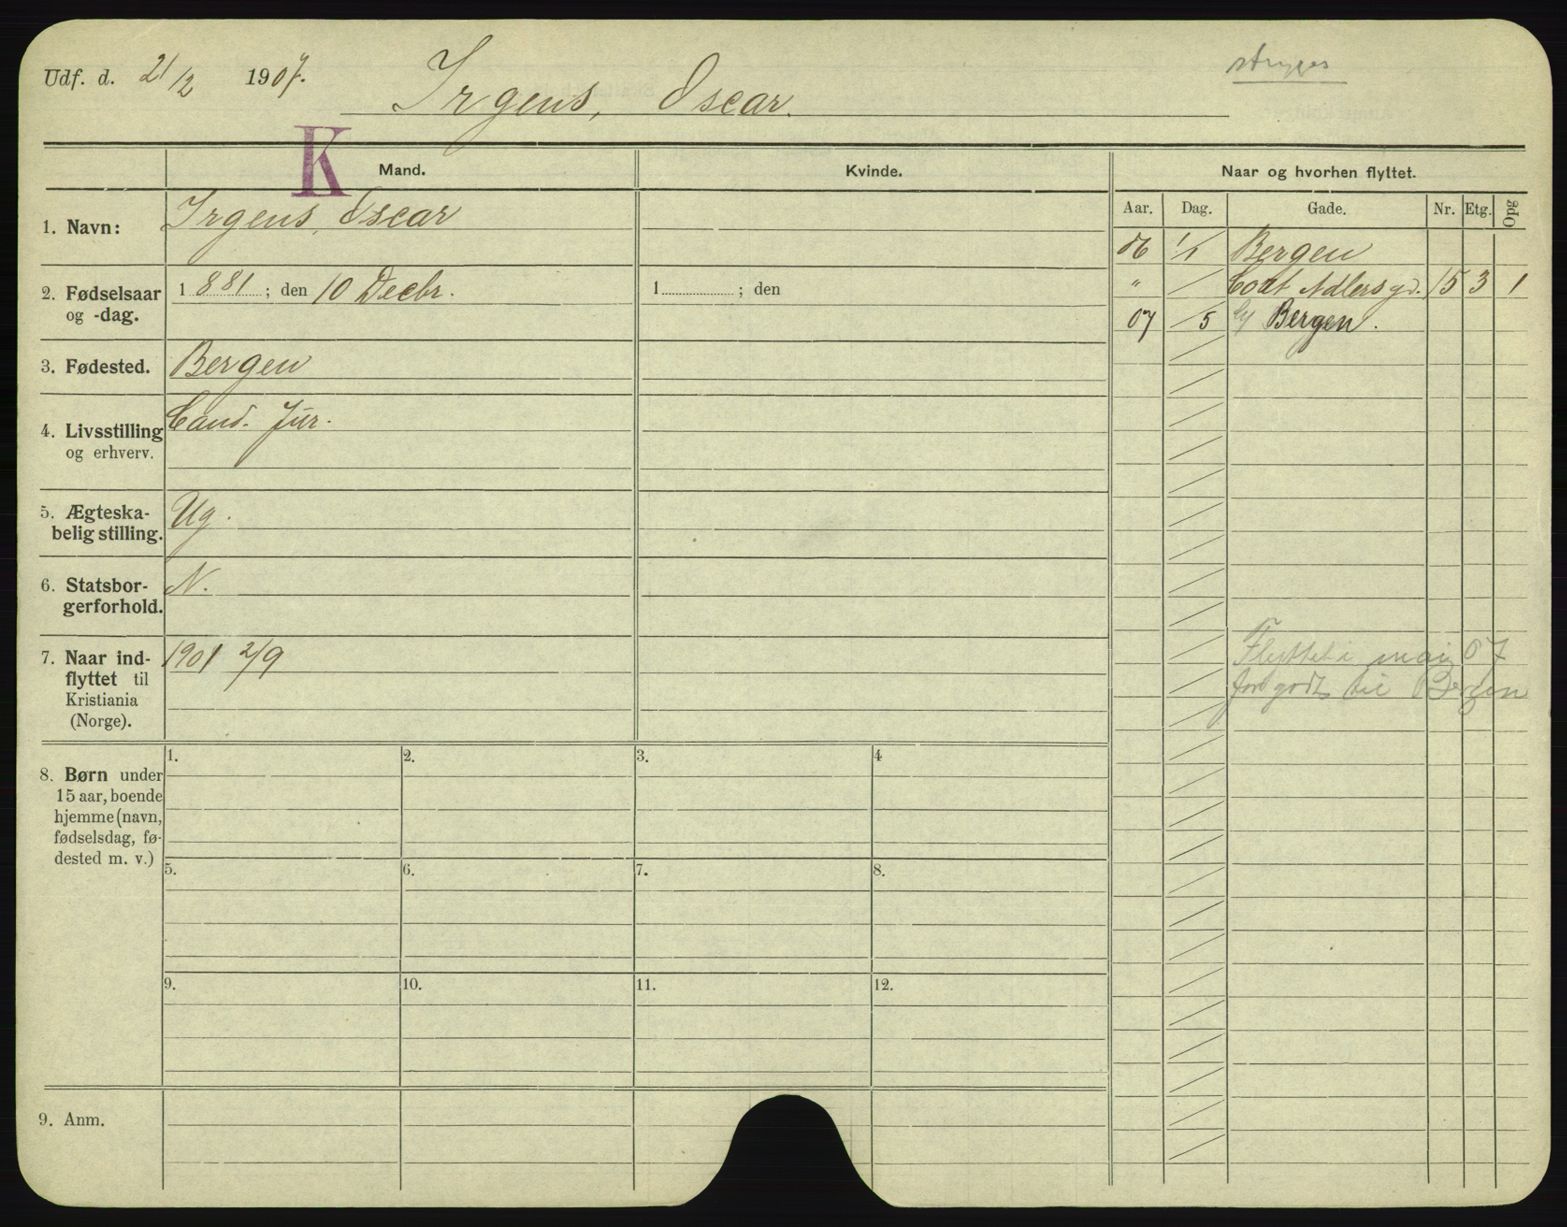 Udf. d. 21/2 1907.
Irgens, Oscar.
stryges
K
Mand. Kvinde. Naar og hvorhen flyttet.
Aar. Dag. Gade. Nr. Etg. Opg
1. Navn: Irgens, Oscar
2. Fødselsaar og -dag. 1881; den 10 Decbr. 1 ; den
3. Fødested. Bergen
4. Livsstilling og erhverv. Cand. Jur.
5. Ægteska-
belig stilling. Ug.
6. Statsbor-
gerforhold. N.
7. Naar ind-
flyttet til
Kristiania
(Norge). 1901 2/9
06 1/1 Bergen
" / Cort Adlers gd. 15 3 1
07 /5 Bergen.
Flyttet i mai 07
for godt til Bergen
8. Børn under
15 aar, boende
hjemme (navn,
fødselsdag, fø-
dested m. v.)
1. 2. 3. 4
5. 6. 7. 8.
9. 10. 11. 12.
9. Anm.